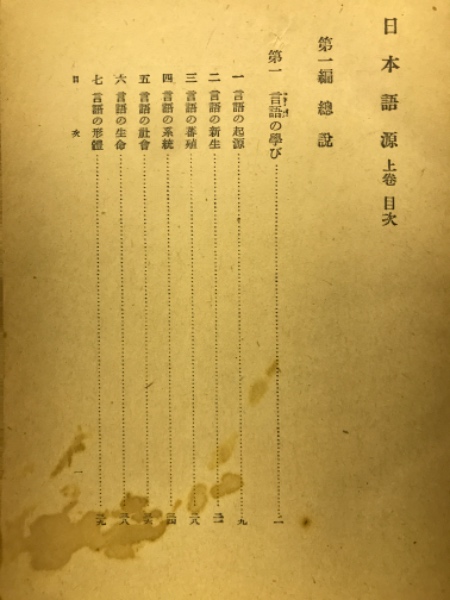 日本語源 上卷 目次
第一編 總說
第一 言語の學び………一
一 言語の起源………九
二 言語の新生
三 言語の蕃殖
四 言語の系統
五 言語の社會
六 言語の生命
七 言語の形體
目次
一